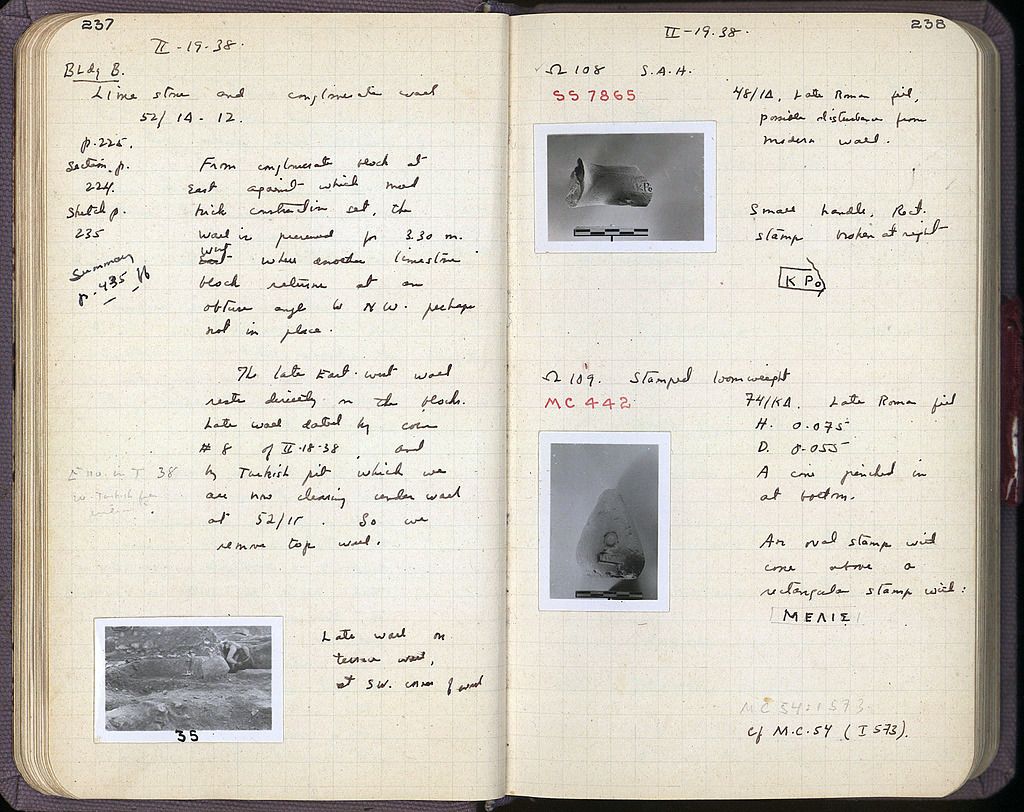 237
II-19-38.
Bldg B.
Lime stone and conglomerate wall
52/ΙΔ-12.
p.225.
Section p.
224.
Sketch p.
235
Summary
p. 435 ff
From conglomerate block at
East against which mud
brick construction set, the
wall is preserved for 3.30 m.
west
where another limestone
block returns at an
obtuse angle to NW. perhaps
not in place.
The late East-west wall
rests directly on the blocks.
Late wall dated by coin
# 8 of II-18-38, and
by Turkish pit which we
are now clearing under wall
at 52/ . So we
remove top wall.
38
35
Late wall on
terrace wall,
at SW. corner of wall
238
II-19-38.
Ω 108 S.A.H.
SS 7865
48/ΙΔ, Late Roman fill,
possible disturbance from
modern wall.
Small handle, Rect.
stamp broken at right
ΚΡο
ΚΡο
Ω 109. Stamped loomweight
MC 442
74/ΚΔ. Late Roman fill
H. 0.075
D. 0.055
A cone pinched in
at bottom.
An oval stamp with
cone above a
rectangular stamp with:
ΜΕΛΙΣ
MC 54: I 573
Cf M.C. 54 (I 573).